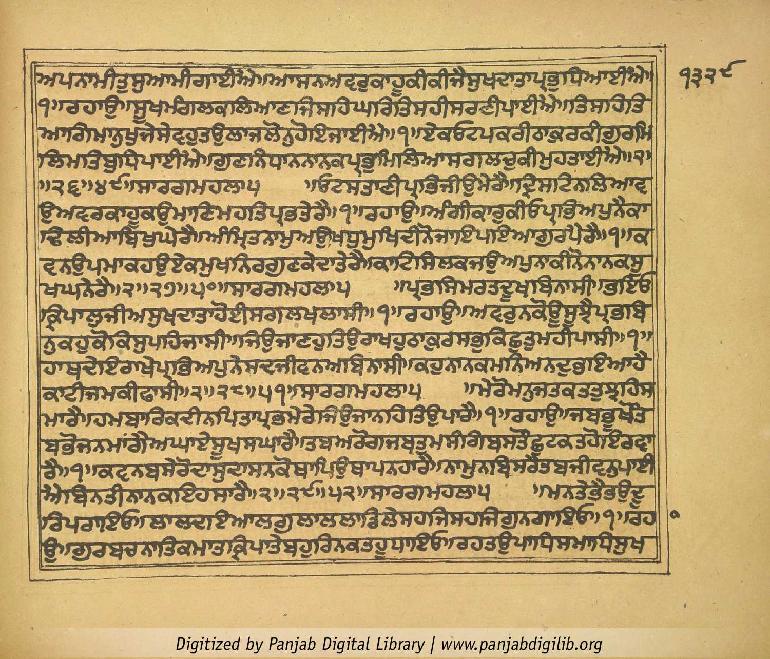 ੧੩੨੯
ਅਪਨਾਮੀਤੁਸੁਆਮੀਗਾਈਐ॥ਆਸਨਅਵਰਕਾਹੂਕੀਕੀਜੈਸੁਖਦਾਤਾਪ੍ਰਭੁਧਿਆਈਐ॥
੧॥ਰਹਾਉ॥ਸੂਖਮੰਗਲਕਲਿਆਣਜਿਸਹਿਘਰਿਤਿਸਹੀਸਰਣੀਪਾਈਐ॥ਤਿਸਹਿਤਿ
ਆਗਿਮਾਨੁਖੁਜੇਸੇਵਹੁਤਉਲਾਜਲੋਨੁਹੋਇਜਾਈਐ॥੧॥ਏਕਓਟਪਕਰੀਠਾਕੁਰਕੀਗੁਰਮਿ
ਲਿਮਤਿਬੁਧਿਪਾਈਐ॥ਗੁਣਨਿਧਾਨਨਾਨਕਪ੍ਰਭੁਮਿਲਿਆਸਗਲਚੁਕੀਮੁਹਤਾਈਐ॥੨
॥੨੬॥੪੯॥ਸਾਰਗਮਹਲਾ੫ ॥ਓਟਸਤਾਣੀਪ੍ਰਭਜੀਉਮੇਰੈ॥ਦ੍ਰਿਸਟਿਨਲਿਆਵ
ਉਅਵਰਕਾਹੂਕਉਮਾਣਿਮਹਤਿਪ੍ਰਭਤੇਰੈ॥੧॥ਰਹਾਉ॥ਅੰਗੀਕਾਰੁਕੀਓਪ੍ਰਭਿਅਪੁਨੈਕਾ
ਢਿਲੀਆਬਿਖੁਘੇਰੈ॥ਅੰਮ੍ਰਿਤਨਾਮੁਅਉਖਧੁਮੁਖਿਦੀਨੋਜਾਇਪਇਆਗੁਰਪੈਰੈ॥੧॥ਕ
ਵਨਉਪਮਾਕਹਉਏਕਮੁਖਨਿਰਗੁਣਕੇਦਾਤੇਰੈ॥ਕਾਟਿਸਿਲਕਜਉਅਪੁਨਾਕੀਨੋਨਾਨਕਸੂ
ਖਘਨੇਰੈ॥੨॥੨੭॥੫੦॥ਸਾਰਗਮਹਲਾ੫ ॥ਪ੍ਰਭਸਿਮਰਤਦੂਖਬਿਨਾਸੀ॥ਭਇਓ
ਕ੍ਰਿਪਾਲੁਜੀਅਸੁਖਦਾਤਾਹੋਈਸਗਲਖਲਾਸੀ॥੧॥ਰਹਾਉ॥ਅਵਰੁਨਕੋਊਸੂਝੈਪ੍ਰਭਬਿ
ਨੁਕਹੁਕੋਕਿਸੁਪਹਿਜਾਸੀ॥ਜਿਉਜਾਣਹੁਤਿਉਰਾਖਹੁਠਾਕੁਰਸਭੁਕਿਛੁਤੁਮਹੀਪਾਸੀ॥੧॥
ਹਾਥਦੇਇਰਾਖੇਪ੍ਰਭਿਅਪੁਨੇਸਦਜੀਵਨਅਬਿਨਾਸੀ॥ਕਹੁਨਾਨਕਮਨਿਅਨਦੁਭਇਆਹੈ
ਕਾਟੀਜਮਕੀਫਾਸੀ॥੨॥੨੮॥੫੧॥ਸਾਰਗਮਹਲਾ੫ ॥ਮੇਰੋਮਨੁਜਤਕਤਤੁਝਹਿਸ
ਮਾਰੈ॥ਹਮਬਾਰਿਕਦੀਨਪਿਤਾਪ੍ਰਭਮੇਰੇਜਿਉਜਾਨਹਿਤਿਉਪਾਰੈ॥੧॥ਰਹਾਉ॥ਜਬਭੂਖੌਤ
ਬਭੋਜਨਮਾਂਗੈਅਘਾਏਸੂਖਸਘਾਰੈ॥ਤਬਅਰੋਗਜਬਤੁਮਸੰਗਿਬਸਤੌਛੁਟਕਤਹੋਇਰਵਾ
ਰੈ॥੧॥ਕਵਨਬਸੇਰੋਦਾਸਦਾਸਨਕੋਥਾਪਿਉਥਾਪਨਹਾਰੈ॥ਨਾਮੁਨਬਿਸਰੈਤਬਜੀਵਨੁਪਾਈ
ਐਬਿਨਤੀਨਾਨਕਇਹਸਾਰੈ॥੨॥੨੯॥੫੨॥ਸਾਰਗਮਹਲਾ੫ ॥ਮਨਤੇਭੈਭਉਦੂ
ਰਿਪਰਾਇਓ॥ਲਾਲਦਇਆਲਗੁਲਾਲਲਾਡਿਲੇਸਹਜਿਸਹਜਿਗੁਨਗਾਇਓ॥੧॥ਰਹ
ਉ॥ਗੁਰਬਚਨਾਤਿਕਮਾਤਕ੍ਰਿਪਾਤੇਬਹੁਰਿਨਕਤਹੂਧਾਇਓ॥ਰਹਤਉਪਾਧਿਸਮਾਧਿਸੁਖ
Digitized by Panjab Digital Library | www.panjabdigilib.org